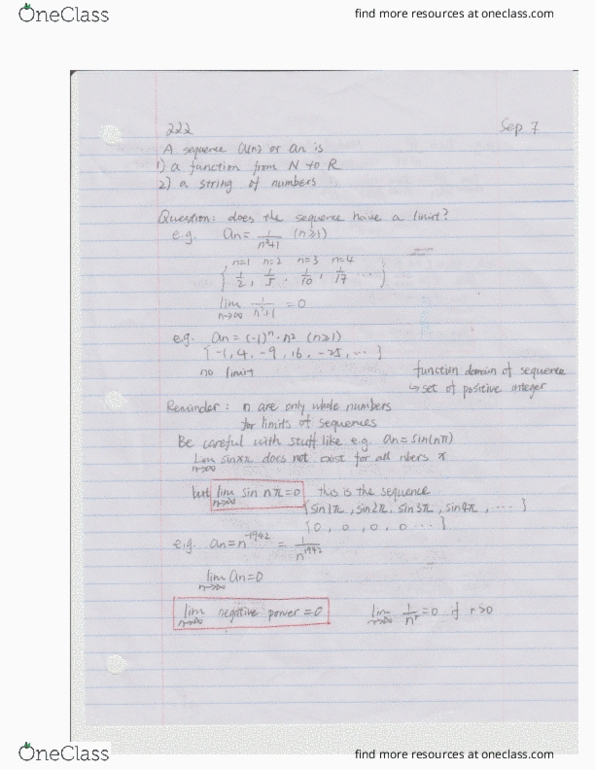 OneClass
find more resources at oneclass.com
222
Sep 7
A sequence {an} or an is
1) a function from N to R
2) a string of numbers
Question: does the sequence have a limit?
e.g. an = 1/(n²+1) (n≥1)
n=1 n=2 n=3 n=4
{ 1/2, 1/5, 1/10, 1/17 ... }
lim n→∞ 1/(n²+1) = 0
e.g. an = (-1)ⁿ · n² (n≥1)
{ -1, 4, -9, 16, -25, ... }
no limit
function domain of sequence
↳ set of positive integer
Reminder: n are only whole numbers
for limits of sequences
Be careful with stuff like e.g. an = sin(nπ)
lim n→∞ sin xπ does not exist for all nbers x
but lim n→∞ sin nπ = 0 this is the sequence
{ sin1π, sin2π, sin3π, sin4π, ... }
{ 0, 0, 0, 0 ... }
e.g. an = n⁻¹⁹⁴² = 1/n¹⁹⁴²
lim n→∞ an = 0
lim n→∞ negative power = 0 lim n→∞ 1/nʳ = 0 if r>0
OneClass
find more resources at oneclass.com